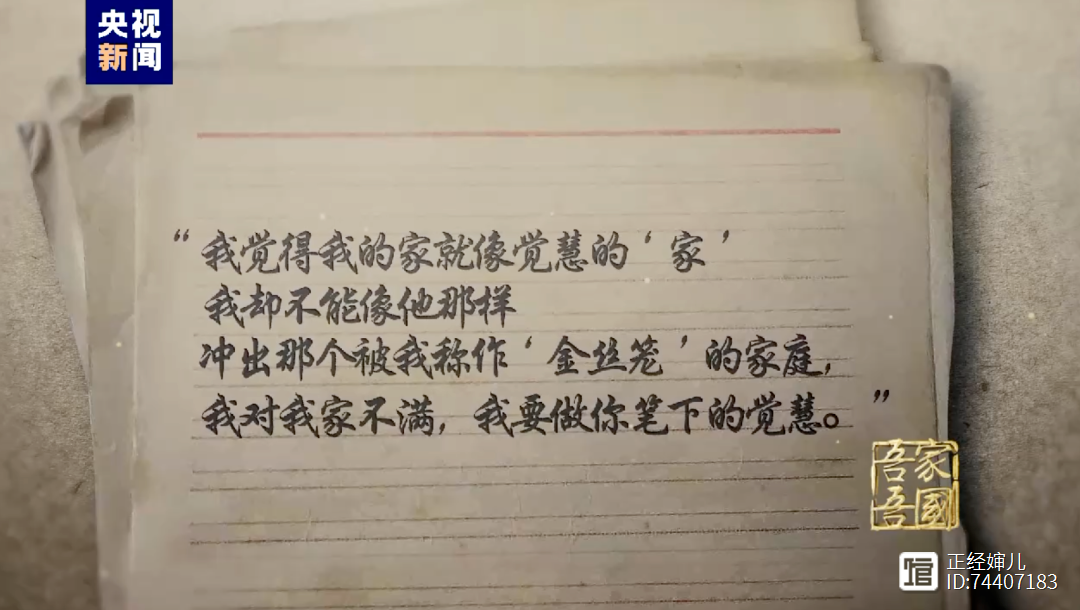 央视
新闻
“我觉得我的家就像觉慧的‘家’
我却不能像他那样
冲出那个被我称作‘金丝笼’的家庭，
我对我家不满，我要做你笔下的觉慧。”
吾家
吾國
正经婶儿
ID:74407183